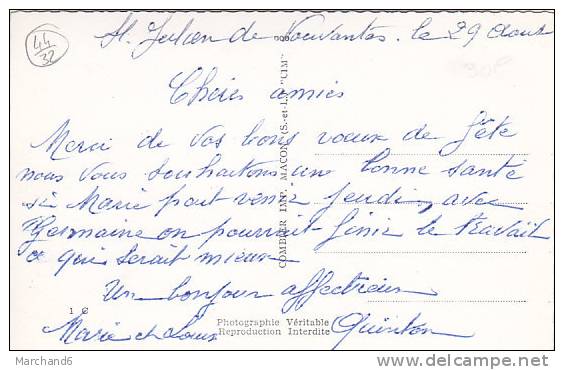 44
32
St. Julien de Vouvantes. le 29 Août
Chères amies
Merci de vos bons voeux de fête
nous vous souhaitons une bonne santé
si Marie peut venir jeudi, avec
Germaine on pourrait finir le travail
ce qui serait mieux
Un bonjour affectueux
Marie et Louis Quinton
COMBIER IMP. MACON (S.-et-L.) "CIM"
1 C
Photographie Véritable
Reproduction Interdite
Marchand6
http://www.delcampe.net